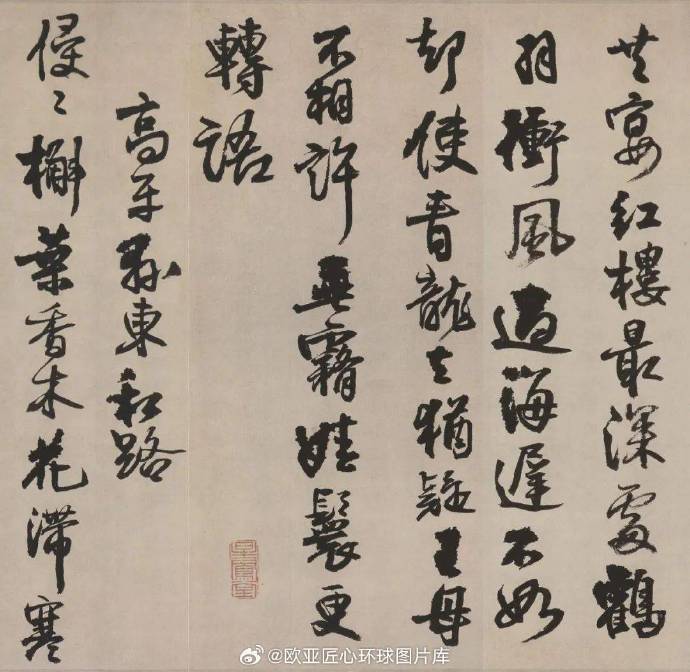 共宴紅樓最深處鶴
羽衝風過海遲不如
却使青龍去猶疑王母
不相許垂霧娃鬟更
轉語
高平縣東私路
侵〻槲葉香木花滯寒
@欧亚匠心环球图片库